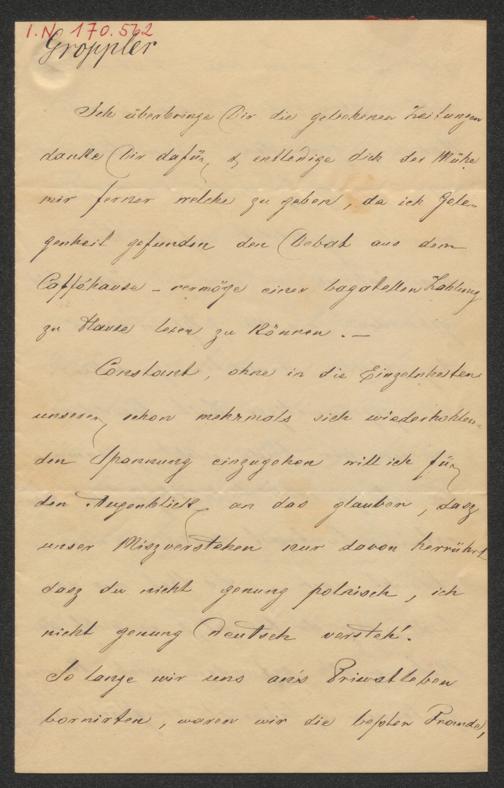 I.N. 170.562
Groppler
Ich überbringe Dir die geliehenen Zeitungen
danke Dir dafür, & entledige dich der Mühe
mir ferner welche zu geben, da ich Gele-
genheit gefunden den Debat aus dem
Cafféhause – vermöge einer bagatellen Zahlung
zu Hause lesen zu können. –
Constant, ohne in die Einzelnheiten
unserer, schon mehrmals sich wiederhohlen-
den Spannung einzugehen will ich für
den Augenblick, an das glauben, dasz
unser Miszverstehen nur davon herrührt
dasz du nicht genung polnisch, ich
nicht genung Deutsch versteh'.
So lange wir uns an's Priwatleben
bornirten, waren wir die beßten Freunde,